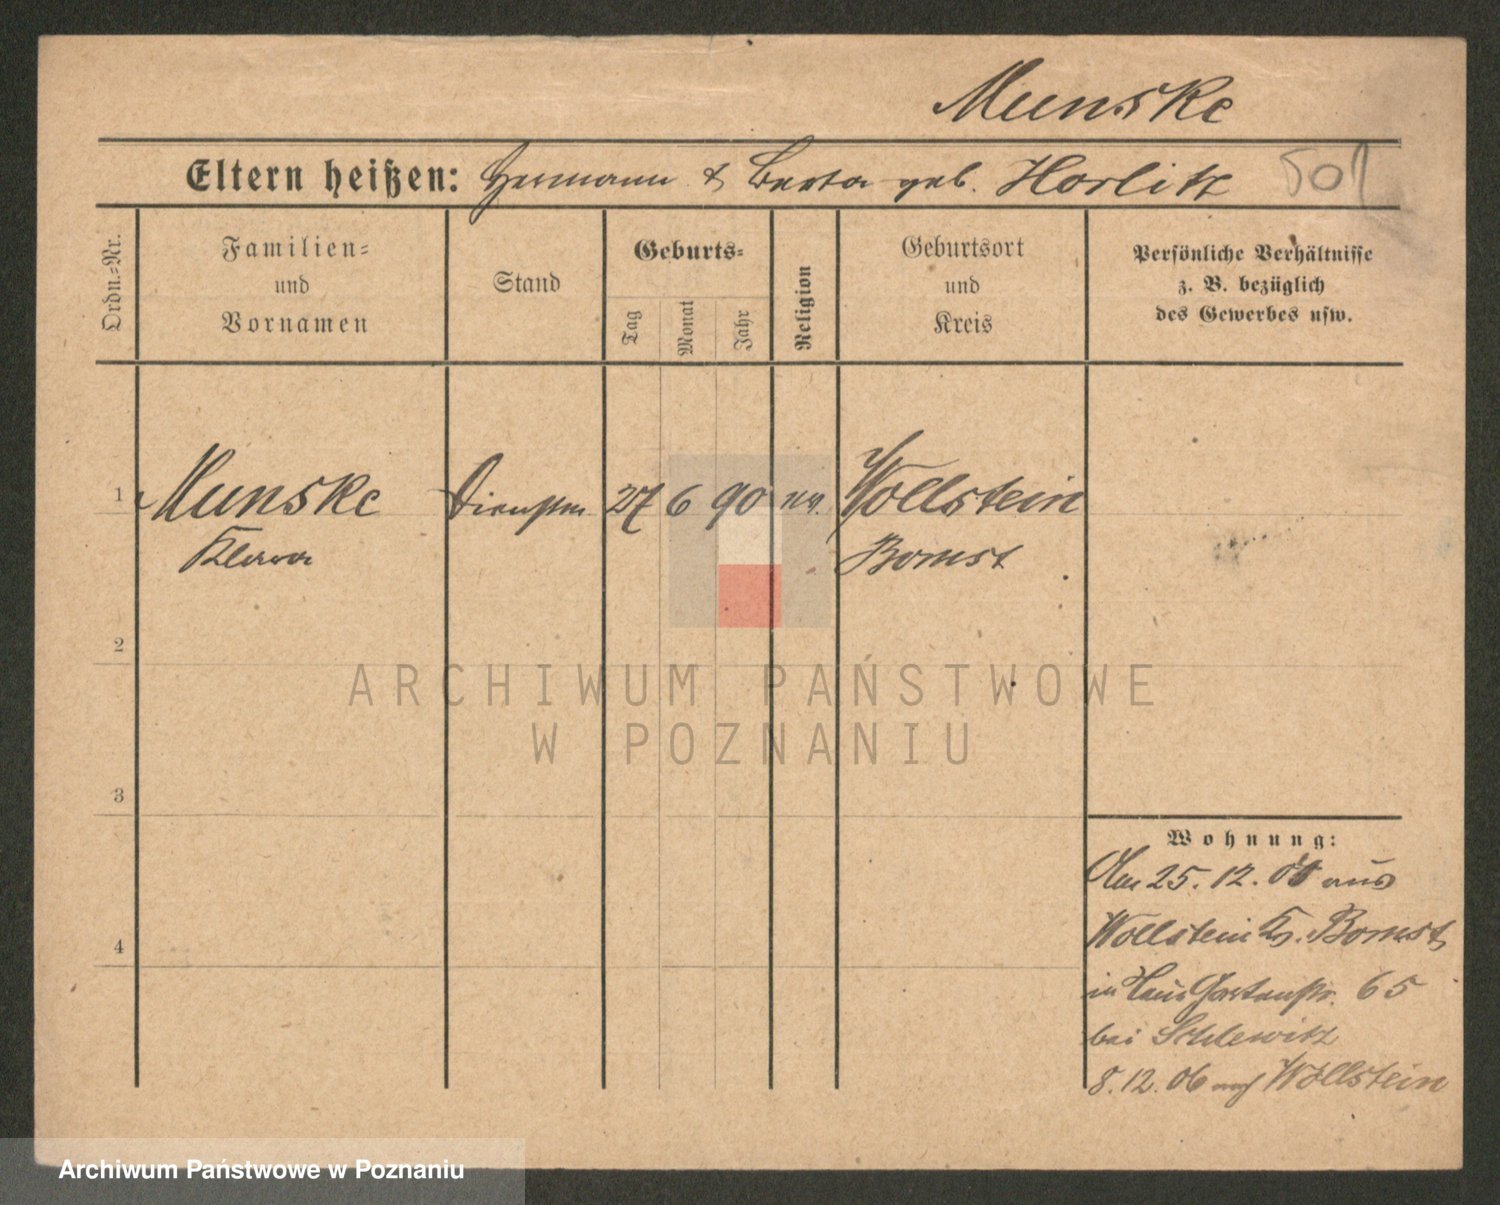 Munske
Eltern heißen: Hermann & Berta geb. Horlitz 501
Ordn.-Nr.
Familien-
und
Vornamen
Stand
Geburts-
Tag
Monat
Jahr
Religion
Geburtsort
und
Kreis
Persönliche Verhältnisse
z. B. bezüglich
des Gewerbes usw.
1 Munske Dienstm. 27 6 90 ev. Wollstein
Klara Bomst
2
ARCHIWUM PAŃSTWOWE
W POZNANIU
3
4
Wohnung:
Am 25. 12. aus
Wollstein Kr. Bomst
in Gartenstr. 65
bei Schlewitz
8. 12. 06 auf Wollstein
Archiwum Państwowe w Poznaniu